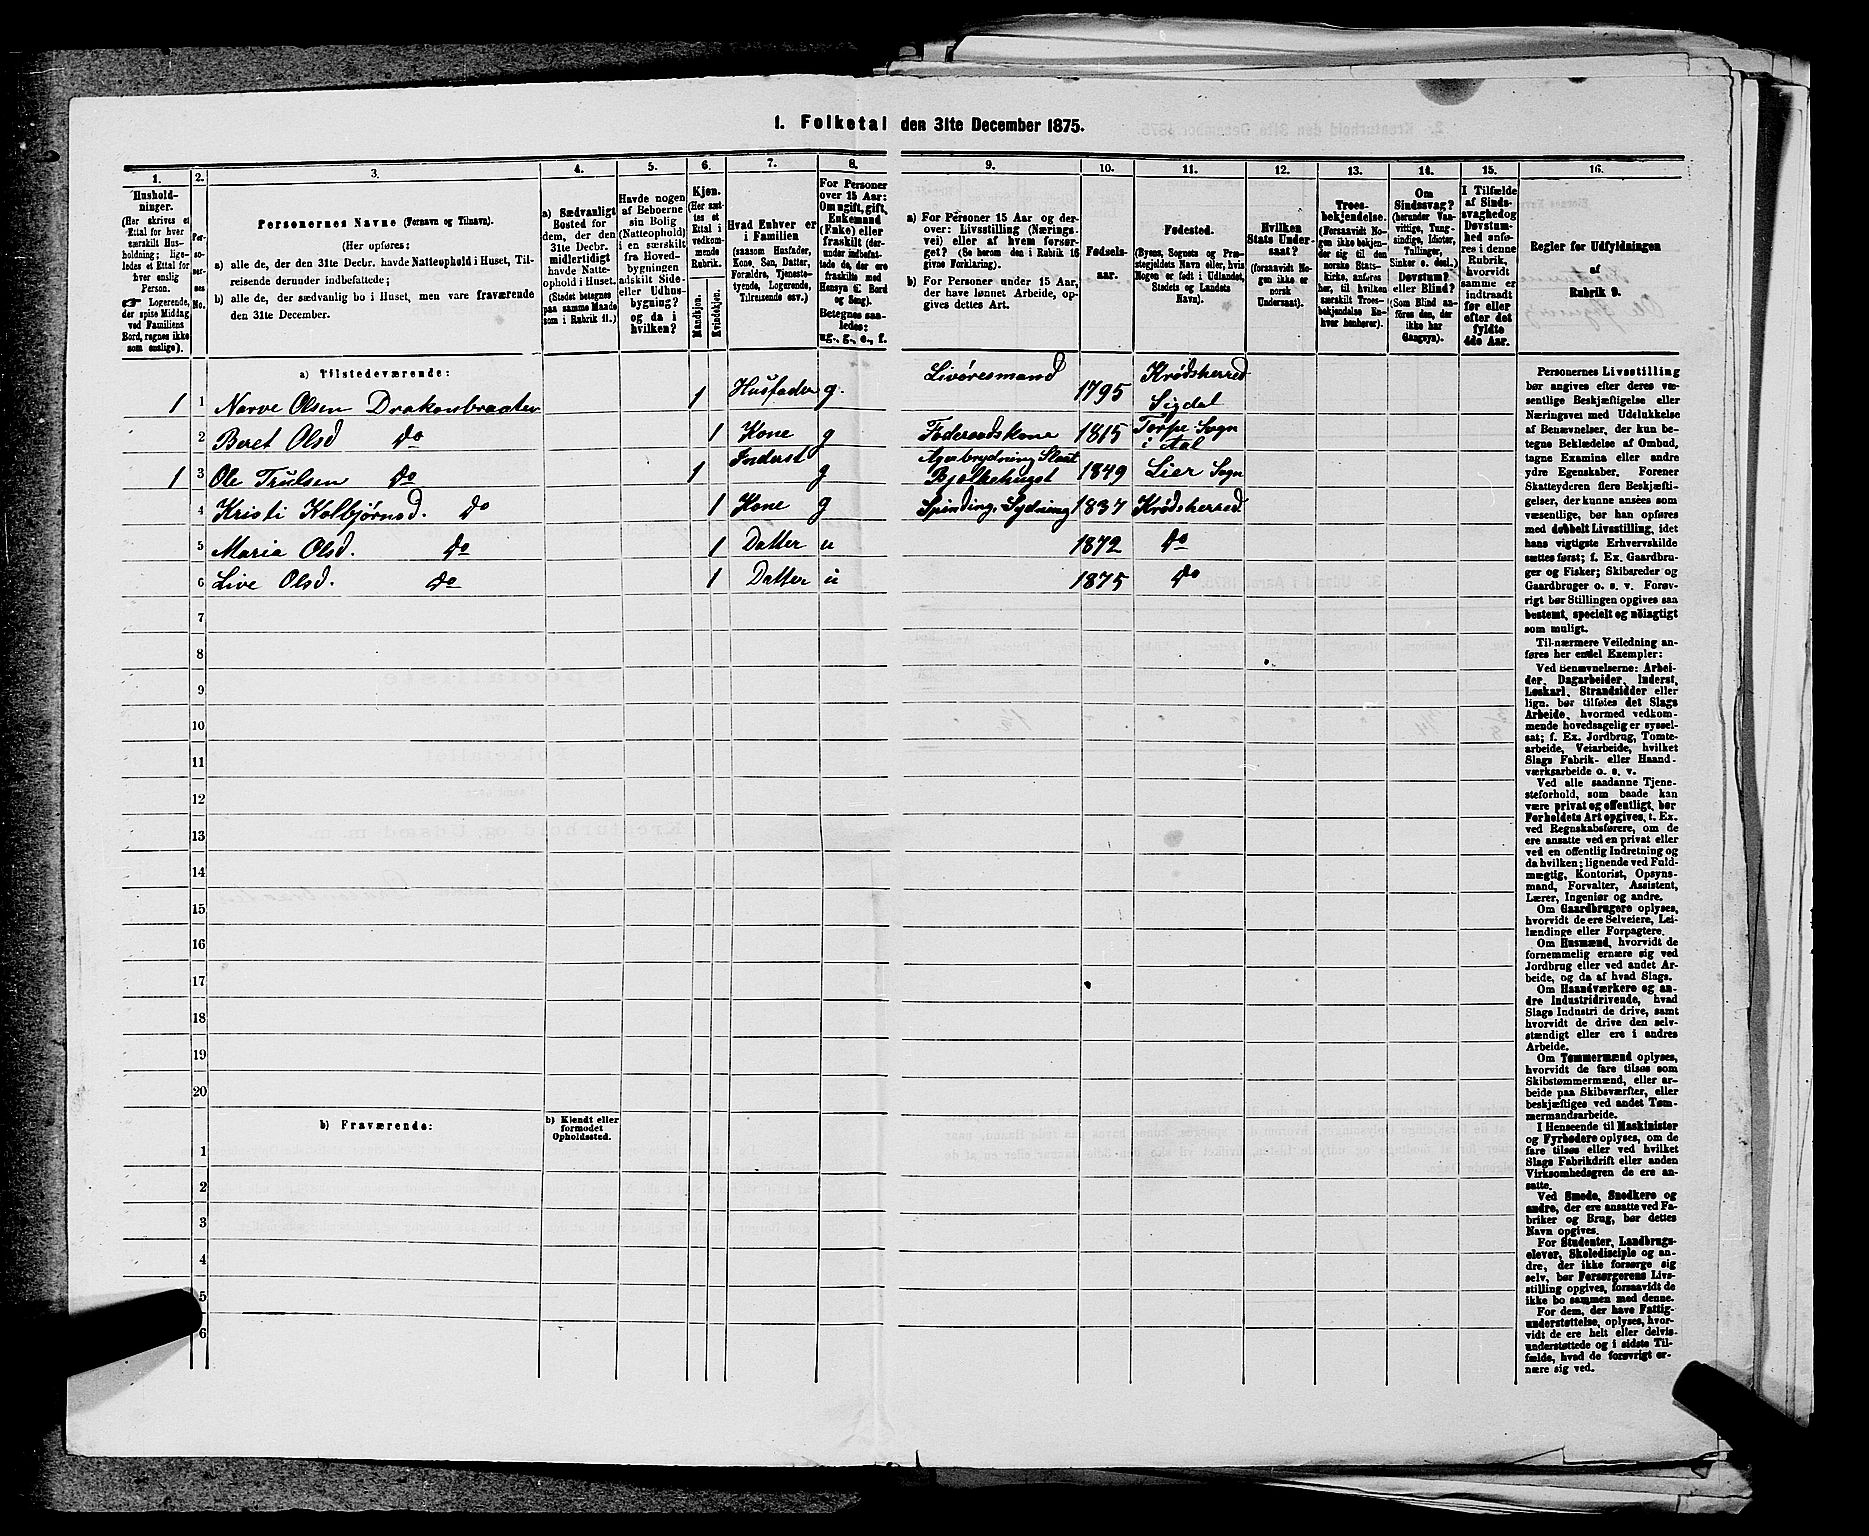 1. Folketal den 31te December 1875.
1. 2. 3. 4. 5. 6. 7. 8. 9. 10. 11. 12. 13. 14. 15. 16.
Hushold-
ninger.
(Her skrives et
Ettal for hver
særskilt Hus-
holdning; lige-
ledes et Ettal for
hver enslig
Person.
☞ Logerende,
der spise Middag
ved Familiens
Bord, regnes ikke
som enslige).
Per-
so-
ner-
nes
No.
Personernes Navne (Fornavn og Tilnavn).
(Her opføres:
a) alle de, der den 31te Decbr. havde Natteophold i Huset, Til-
reisende derunder indbefattede;
b) alle de, der sædvanlig bo i Huset, men vare fraværende
den 31te December.
a) Sædvanligt
Bosted for
dem, der den
31te Decbr.
midlertidigt
havde Natte-
ophold i Huset.
(Stedet betegnes
paa samme Maade
som i Rubrik 11.)
Havde nogen
af Beboerne
sin Bolig
(Natteophold)
i en særskilt
fra Hoved-
bygningen
adskilt Side-
eller Udhus-
bygning?
og da i
hvilken?
Kjøn.
(Her sæt-
tes et
Ettal i
vedkom-
mende
Rubrik.
Mandkjøn.
Kvindekjøn.
Hvad Enhver er
i Familien
(saasom Husfader,
Kone, Søn, Datter,
Forældre, Tjeneste-
tyende, Logerende,
Tilreisende osv.)
For Personer
over 15 Aar:
Om ugift, gift,
Enkemand
(Enke) eller
fraskilt (der-
under indbefat-
tede de, der ere
fraskilte med
Hensyn til Bord
og Seng).
Betegnes saa-
ledes:
ug., g., e., f.
a) For Personer 15 Aar og der-
over: Livsstilling (Nærings-
vei) eller af hvem forsør-
get? (Se herom den i Rubrik 16
givne Forklaring).
b) For Personer under 15 Aar,
der have lønnet Arbeide, op-
gives dettes Art.
Fødsels-
aar.
Fødested.
(Byens, Sognets og Præ-
stegjeldets Navn eller, hvis
Nogen er født i Udlandet,
Stedets og Landets
Navn).
Hvilken
Stats Under-
saat?
(forsaavidt No-
gen ikke er
norsk
Undersaat).
Troes-
bekjendelse.
(Forsaavidt No-
gen ikke bekjen-
der sig til den
norske Stats-
kirke, anføres
her, til hvilken
særskilt Troes-
bekjendelse En-
hver henhører).
Om
Sindssvag?
(herunder Van-
vittige, Tung-
sindige, Idioter,
Tullinger,
Sinker o. desl.)
Døvstum?
eller Blind?
(Som Blind an-
føres den, der
ikke har
Gangsyn).
I Tilfælde
af Sinds-
svaghed og
Døvstum-
hed anfø-
res i denne
Rubrik,
hvorvidt
samme er
indtraadt
før eller
efter det
fyldte
4de Aar.
Regler for Udfyldningen
af
Rubrik 9.
a) Tilstedeværende:
1 1 Narve Olsen Drakenbraaten 1 Husfader g. Livøresmand 1795 Krødsherred
Sigdal
2 Beret Olsd do 1 Kone g Føderaadskone 1815 Torpe Sogn
i Aal
1 3 Ole Trulsen do 1 Inderst g 1849 Lier Sogn
4 Kristi Kolbjørnsd. do 1 Kone g Spinding, Sydning 1837 Krødsherred
5 Maria Olsd. do 1 Datter u 1872 do
6 Live Olsd. do 1 Datter u 1875 do
7
8
9
10
11
12
13
14
15
16
17
18
19
20
b) Fraværende:
b) Kjendt eller
formodet
Opholdssted.
1
2
3
4
5
6
Personernes Livsstilling
bør angives efter deres væ-
sentlige Beskjæftigelse eller
Næringsvei med Udelukkelse
af Benævnelser, der kun be-
tegne Beklædelse af Ombud,
tagne Examina eller andre
ydre Egenskaber. Forener
Skatteyderen flere Beskjæfti-
gelser, der kunne ansees som
væsentlige, bør han opføres
med dobbelt Livsstilling, idet
hans vigtigste Erhvervskilde
sættes først; f. Ex. Gaardbru-
ger og Fisker; Skibsreder og
Gaardbruger o. s. v. Forøv-
rigt bør Stillingen opgives saa
bestemt, specielt og nøiagtigt
som muligt.
Til nærmere Veiledning an-
føres her endel Exempler:
Ved Benævnelserne: Arbei-
der, Dagarbeider, Inderst,
Løskarl, Strandsidder eller
lign. bør tilføies det Slags
Arbeide, hvormed vedkom-
mende hovedsagelig er syssel-
sat; f. Ex. Jordbrug, Tomte-
arbeide, Veiarbeide, hvilket
Slags Fabrik- eller Haand-
værksarbeide o. s. v.
Ved alle saadanne Tjene-
steforhold, som baade kan
være privat og offentligt, bør
Forholdets Art opgives, t. Ex.
ved Regnskabsførere, om de
ere ansatte ved en privat eller
ved en offentlig Indretning og
da hvilken; lignende ved Fuld-
mægtig, Kontorist, Opsyns-
mand, Forvalter, Assistent,
Lærer, Ingeniør og andre.
Om Gaardbrugere oplyses,
hvorvidt de ere Selveiere, Lei-
lændinge eller Forpagtere.
Om Husmænd, hvorvidt de
fornemmelig ernære sig ved
Jordbrug eller ved andet Ar-
beide, og da af hvad Slags.
Om Haandværkere og an-
dre Industridrivende, hvad
Slags Industri de drive, samt
hvorvidt de drive den selv-
stændigt eller ere i andres
Arbeide.
Om Tømmermænd oplyses,
hvorvidt de fare tilsøs som
Skibstømmermænd, eller ar-
beide paa Skibsværfter, eller
beskjæftiges ved andet Tøm-
mermandsarbeide.
I Henseende til Maskinister
og Fyrbødere oplyses, om de
fare tilsøs eller ved hvilket
Slags Fabrikdrift eller anden
Virksomhedsgren de ere an-
satte.
Ved Smede, Snedkere og
andre, der ere ansatte ved Fa-
briker og Brug, bør dettes
Navn opgives.
For Studenter, Landbrugs-
elever, Skoledisciple og an-
dre, der ikke forsørge sig
selv, bør Forsørgerens Livs-
stilling opgives, forsaavidt de
ikke bo sammen med denne.
For dem, der have Fattig-
understøttelse, oplyses, hvor-
vidt de ere helt eller delvis
understøttede og i sidste Til-
fælde, hvad de forøvrigt er-
nære sig ved.